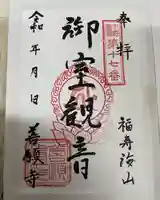 奉拝
第十七番
福寿海山
御室観音
令和 年 月 日
善願寺